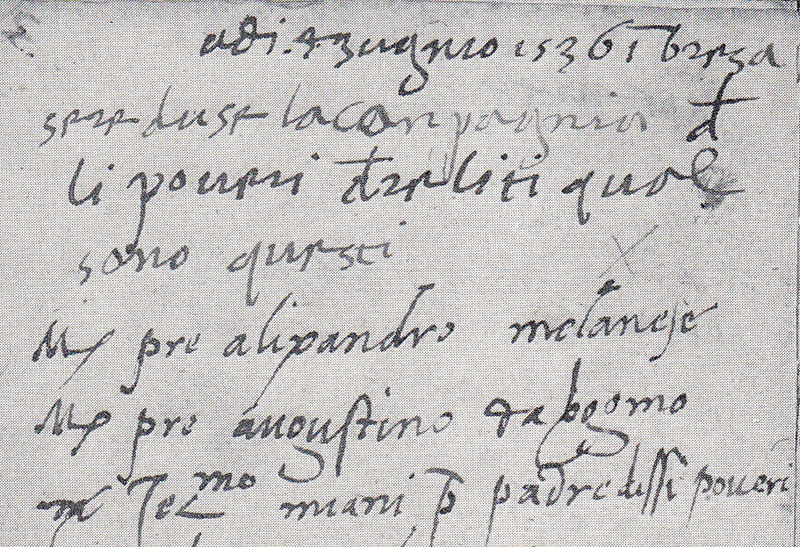 adi. 4 zugnio 1536 i bresa
se reduse la conpagnia d
li poveri dreliti quol
sono questi
pre alixandro melanese
pre avogustino da bgomo
m Jermo miani p padre dssi poveri